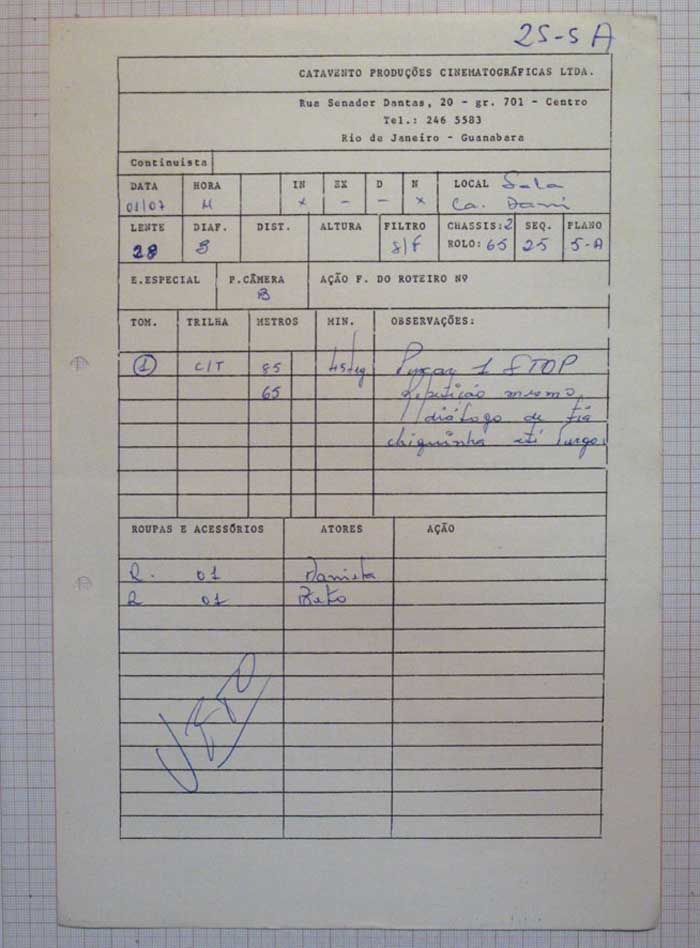 25-5 A
CATAVENTO PRODUÇÕES CINEMATOGRÁFICAS LTDA.
Rua Senador Dantas, 20 - gr. 701 - Centro
Tel.: 246 5583
Rio de Janeiro - Guanabara
Continuista
DATA HORA IN EX D N LOCAL Sala
01/07 M x - - x Ca. Dani
LENTE DIAF. DIST. ALTURA FILTRO CHASSIS: 2 SEQ. PLANO
28 S/F ROLO: 65 25 5-A
E.ESPECIAL P.CÂMERA AÇÃO F. DO ROTEIRO Nº
B
TOM. TRILHA METROS MIN. OBSERVAÇÕES:
1 C/T 85 45seg Puxar 1 STOP
65 Repetição mesmo
diálogo de tia
chiquinha até
ROUPAS E ACESSÓRIOS ATORES AÇÃO
R. 01 Daniela
R 01 Beto